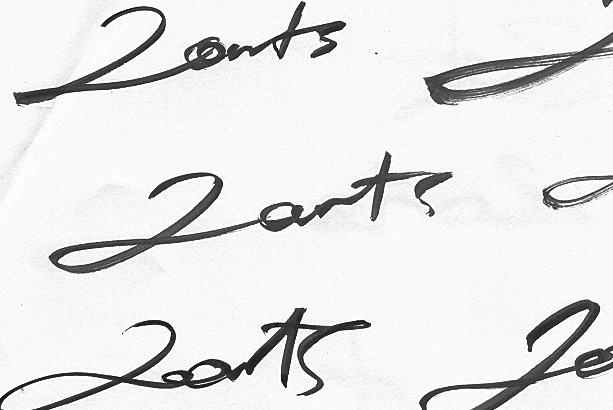 2ants
2ants
2ants